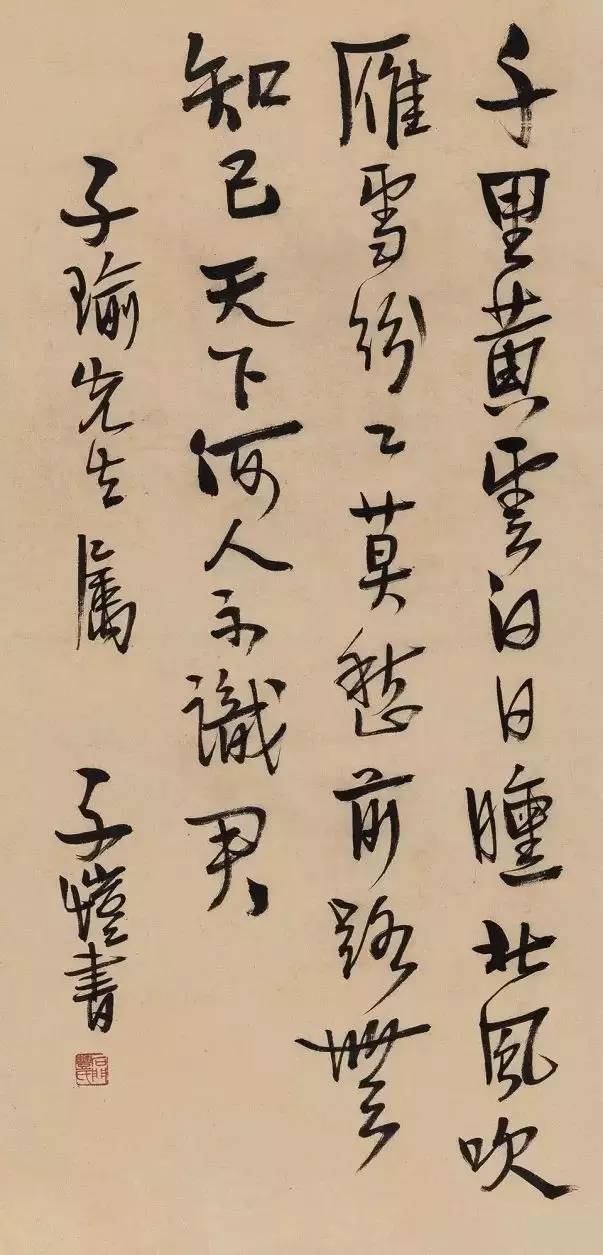 千里黄雲白日曛北風吹
雁雪紛〻莫愁前路無
知己天下何人不識君
子瑜先生屬 子愷書
石門豐氏